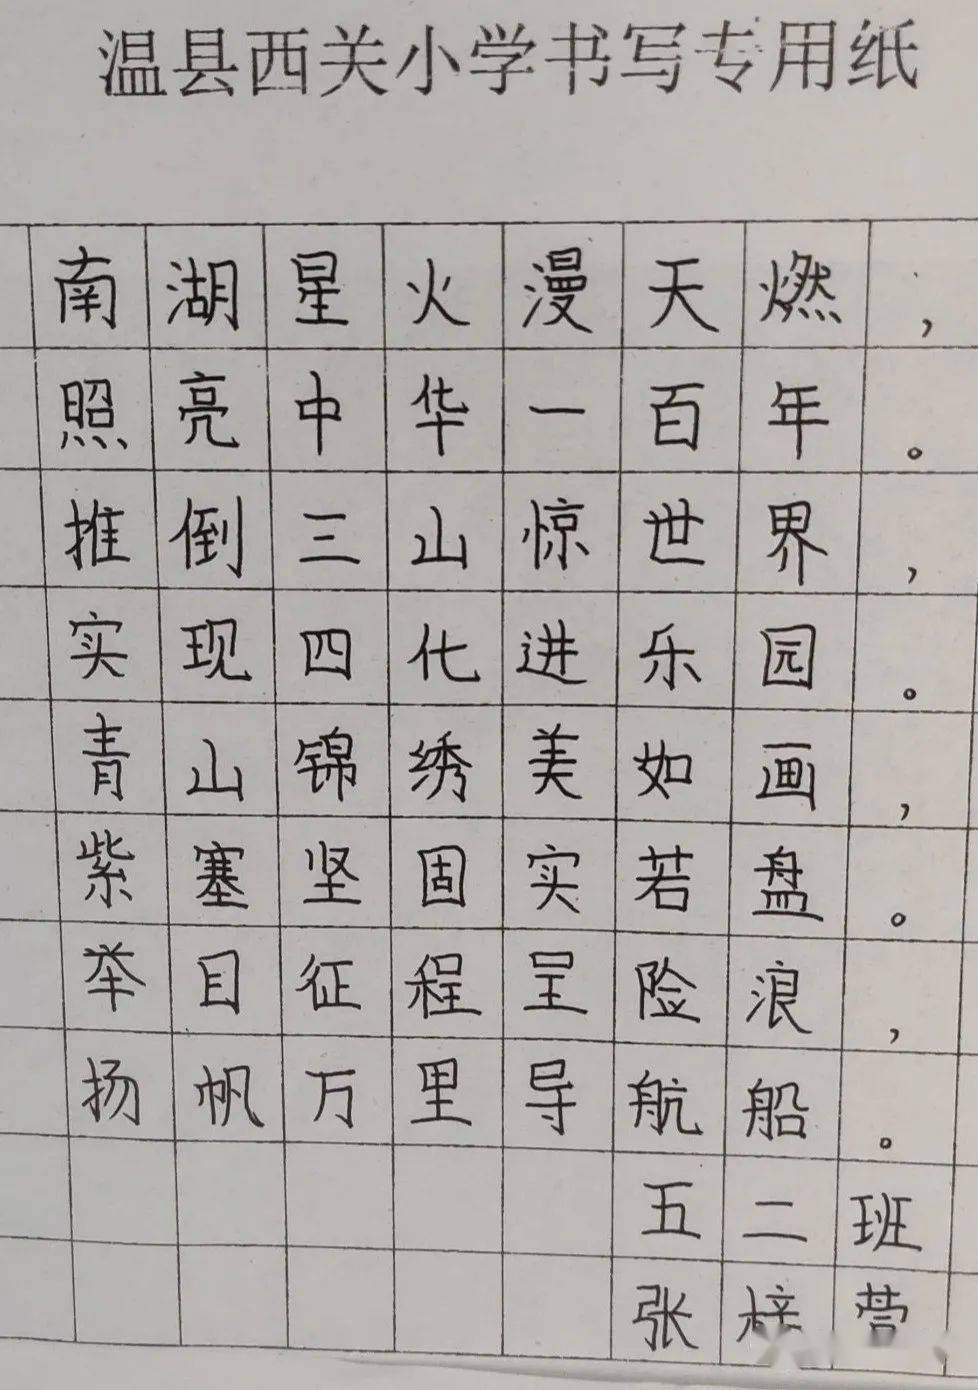 温县西关小学书写专用纸
南湖星火漫天燃，
照亮中华一百年。
推倒三山惊世界，
实现四化进乐园。
青山锦绣美如画，
紫塞坚固实若盘。
举目征程呈险浪，
扬帆万里导航船。
五二班
张梓